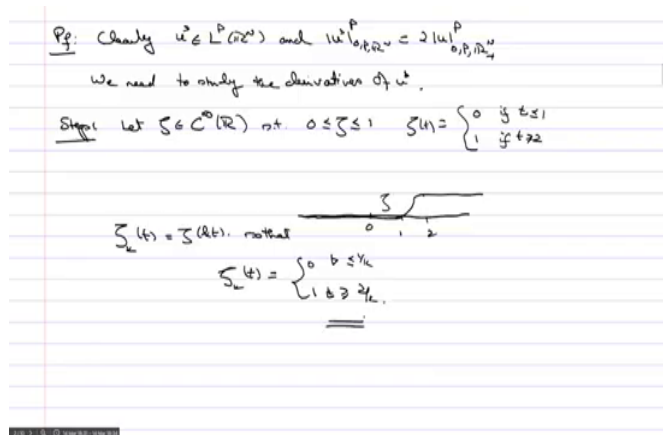 Pf: Clearly u* ∈ L^p(ℝ^N) and |u*|^p_{0,p,ℝ^N} = 2|u|^p_{0,p,ℝ^N_+}
We need to study the derivatives of u*.
Step 1 Let ζ ∈ C^∞(ℝ) s.t. 0 ≤ ζ ≤ 1 ζ(t) = { 0 if t ≤ 1
1 if t ≥ 2
ζ
0 1 2
ζ_k(t) = ζ(kt). so that
ζ_k(t) = { 0 t ≤ 1/k
1 t ≥ 2/k.